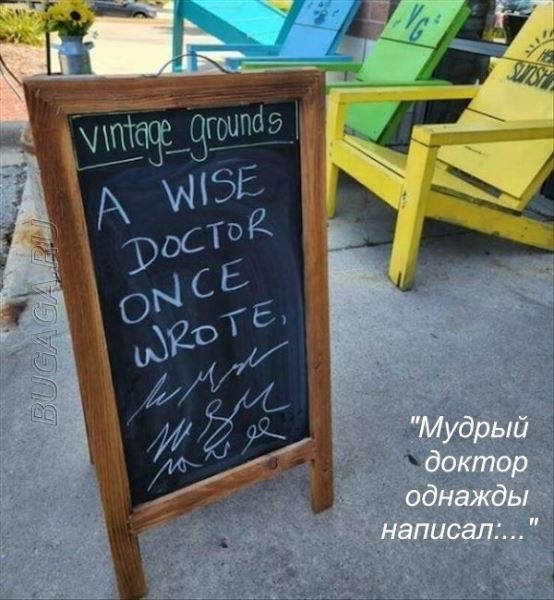 vintage grounds
A WISE
DOCTOR
ONCE
WROTE,
VG
SUNSHINE
BUGAGA.RU
"Мудрый
доктор
однажды
написал:..."